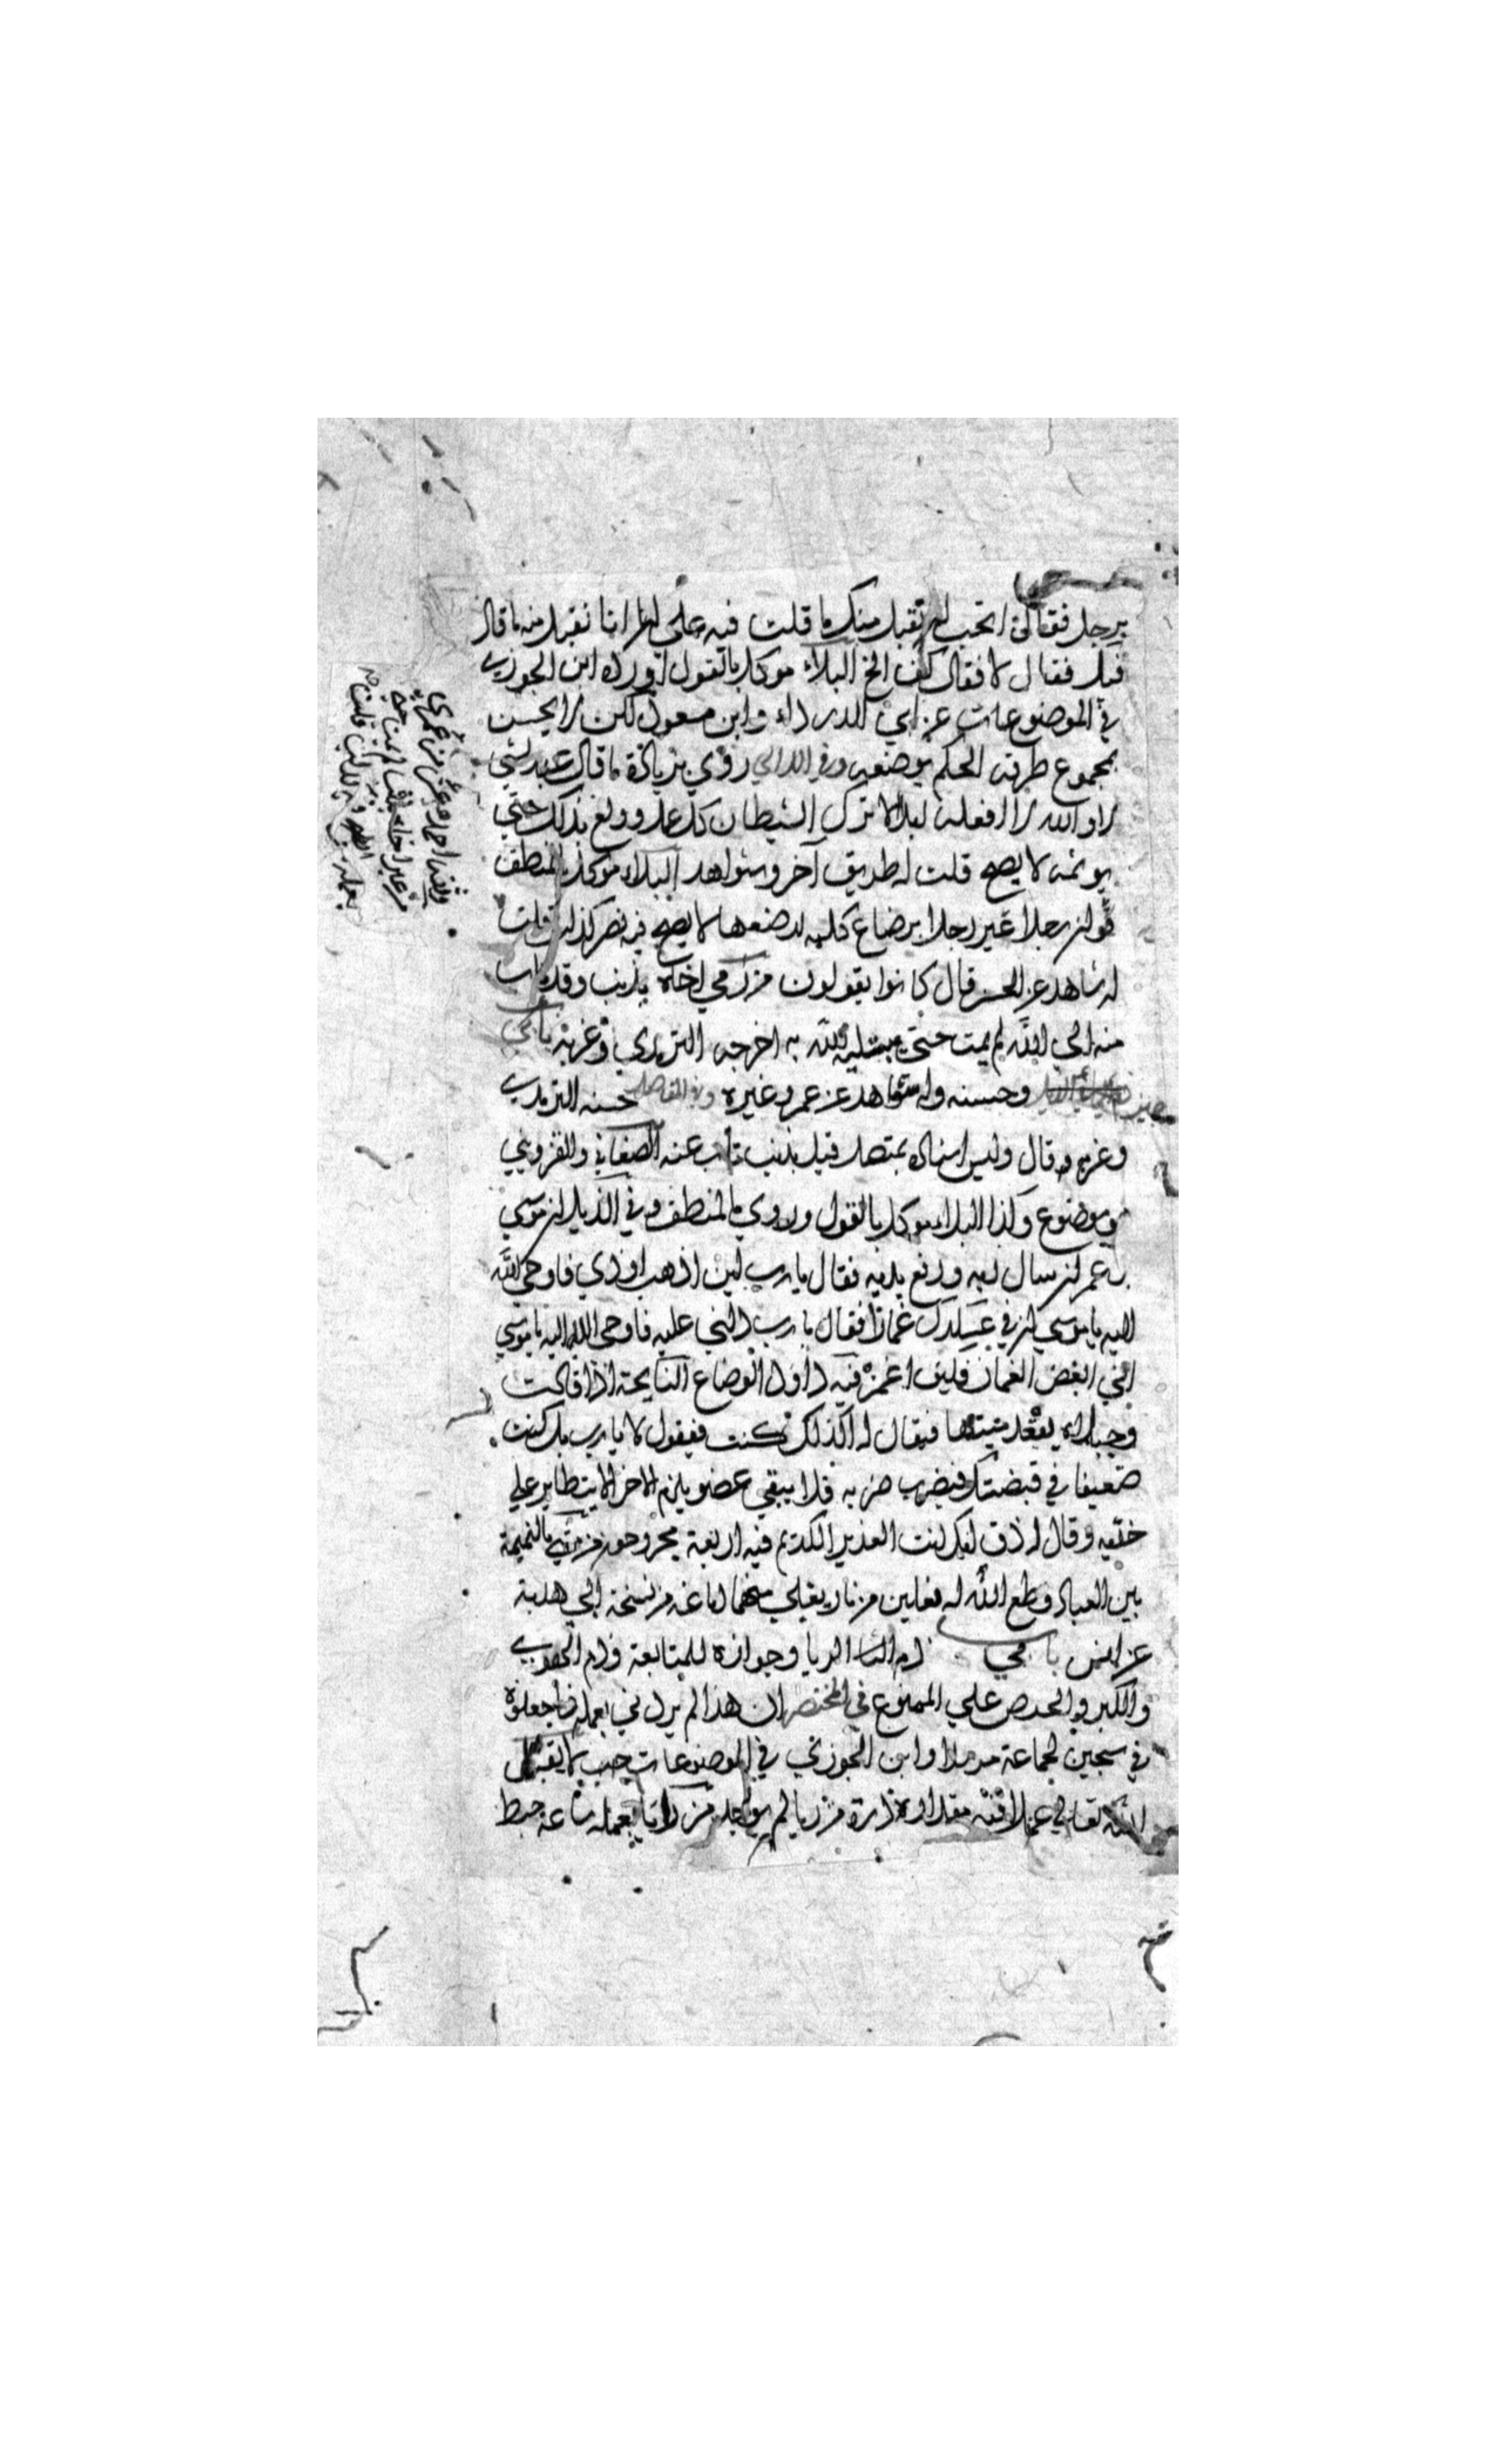 برجل فقال اتحب ان نقبل منك ما قلت فيه على انا نقبل منه ما قال
فيك فقال لا فقال كف الخ البلاء موكل بالقول اورده ابن الجوزي
في الموضوعات عن ابي الدرداء وابن مسعود لكن لا يحسن
بمجموع طرقه الحكم بوضعه وفي اللالي روي بزيادة ما قال عبد لشي
لا والله لا افعله ابدا الا ترك الشيطان كل عمل وولع بذلك حتى
يوثمه لا يصح قلت له طريق آخر وشواهد البلاء موكل بالمنطق
فلو ان رجلا عير رجلا برضاع كلبة لرضعها لا يصح فيه نصر كذاب قلت
له شاهد عن الحسن قال كانوا يقولون من رمي اخاه بذنب وقد تاب
منه الي الله لم يمت حتي يبتليه الله به اخرجه الترمذي وغربه
وحسنه وله شواهد عن عمر وغيره وفي المقاصد حسنه الترمذي
وغربه وقال وليس اسناده بمتصل قيل بذنب تاب عنه الصغاني وللقزويني
موضوع وكذا البلاء موكل بالقول وروي بالمنطق وفي الذيل ان موسي
بن عمران سال ربه ورفع يديه فقال يا رب اين اذهب اوذي فاوحي الله
اليه يا موسي ان في عسكرك غمازا فقال يا رب دلني عليه فاوحى الله اليه يا موسي
اني ابغض الغماز فكيف اغمز فيه داود الوضاع النايحة اذا قالت
واجبلاه يقعد ميتها فيقال له اكذلك كنت فيقول لا يا رب بل كنت
ضعيفا في قبضتك فيضرب ضربه فلا يبقي عضو يلزم الاخر الا يتطاير علي
حقيه وقال له ذق انك انت العزيز الكريم فيه اربعة مجروحون من مشي بالنميمة
بين العباد قطع الله له نعلين من نار يغلي منهما دماغه من نسخة ابي هدبة
عن انس باب في ذم الريا وجوازه للمتابعة وذم الحقد
والكبر والحرص علي الممنوع في المختصر ان هذا لم يردني بعمله فاجعلوه
في سجين لجماعة مرسلا وابن الجوزي في الموضوعات لا يقبل
الله تعالي عملا فيه مقدار ذرة من ريا لم يوجد من رايا بعمله ساعة حبط